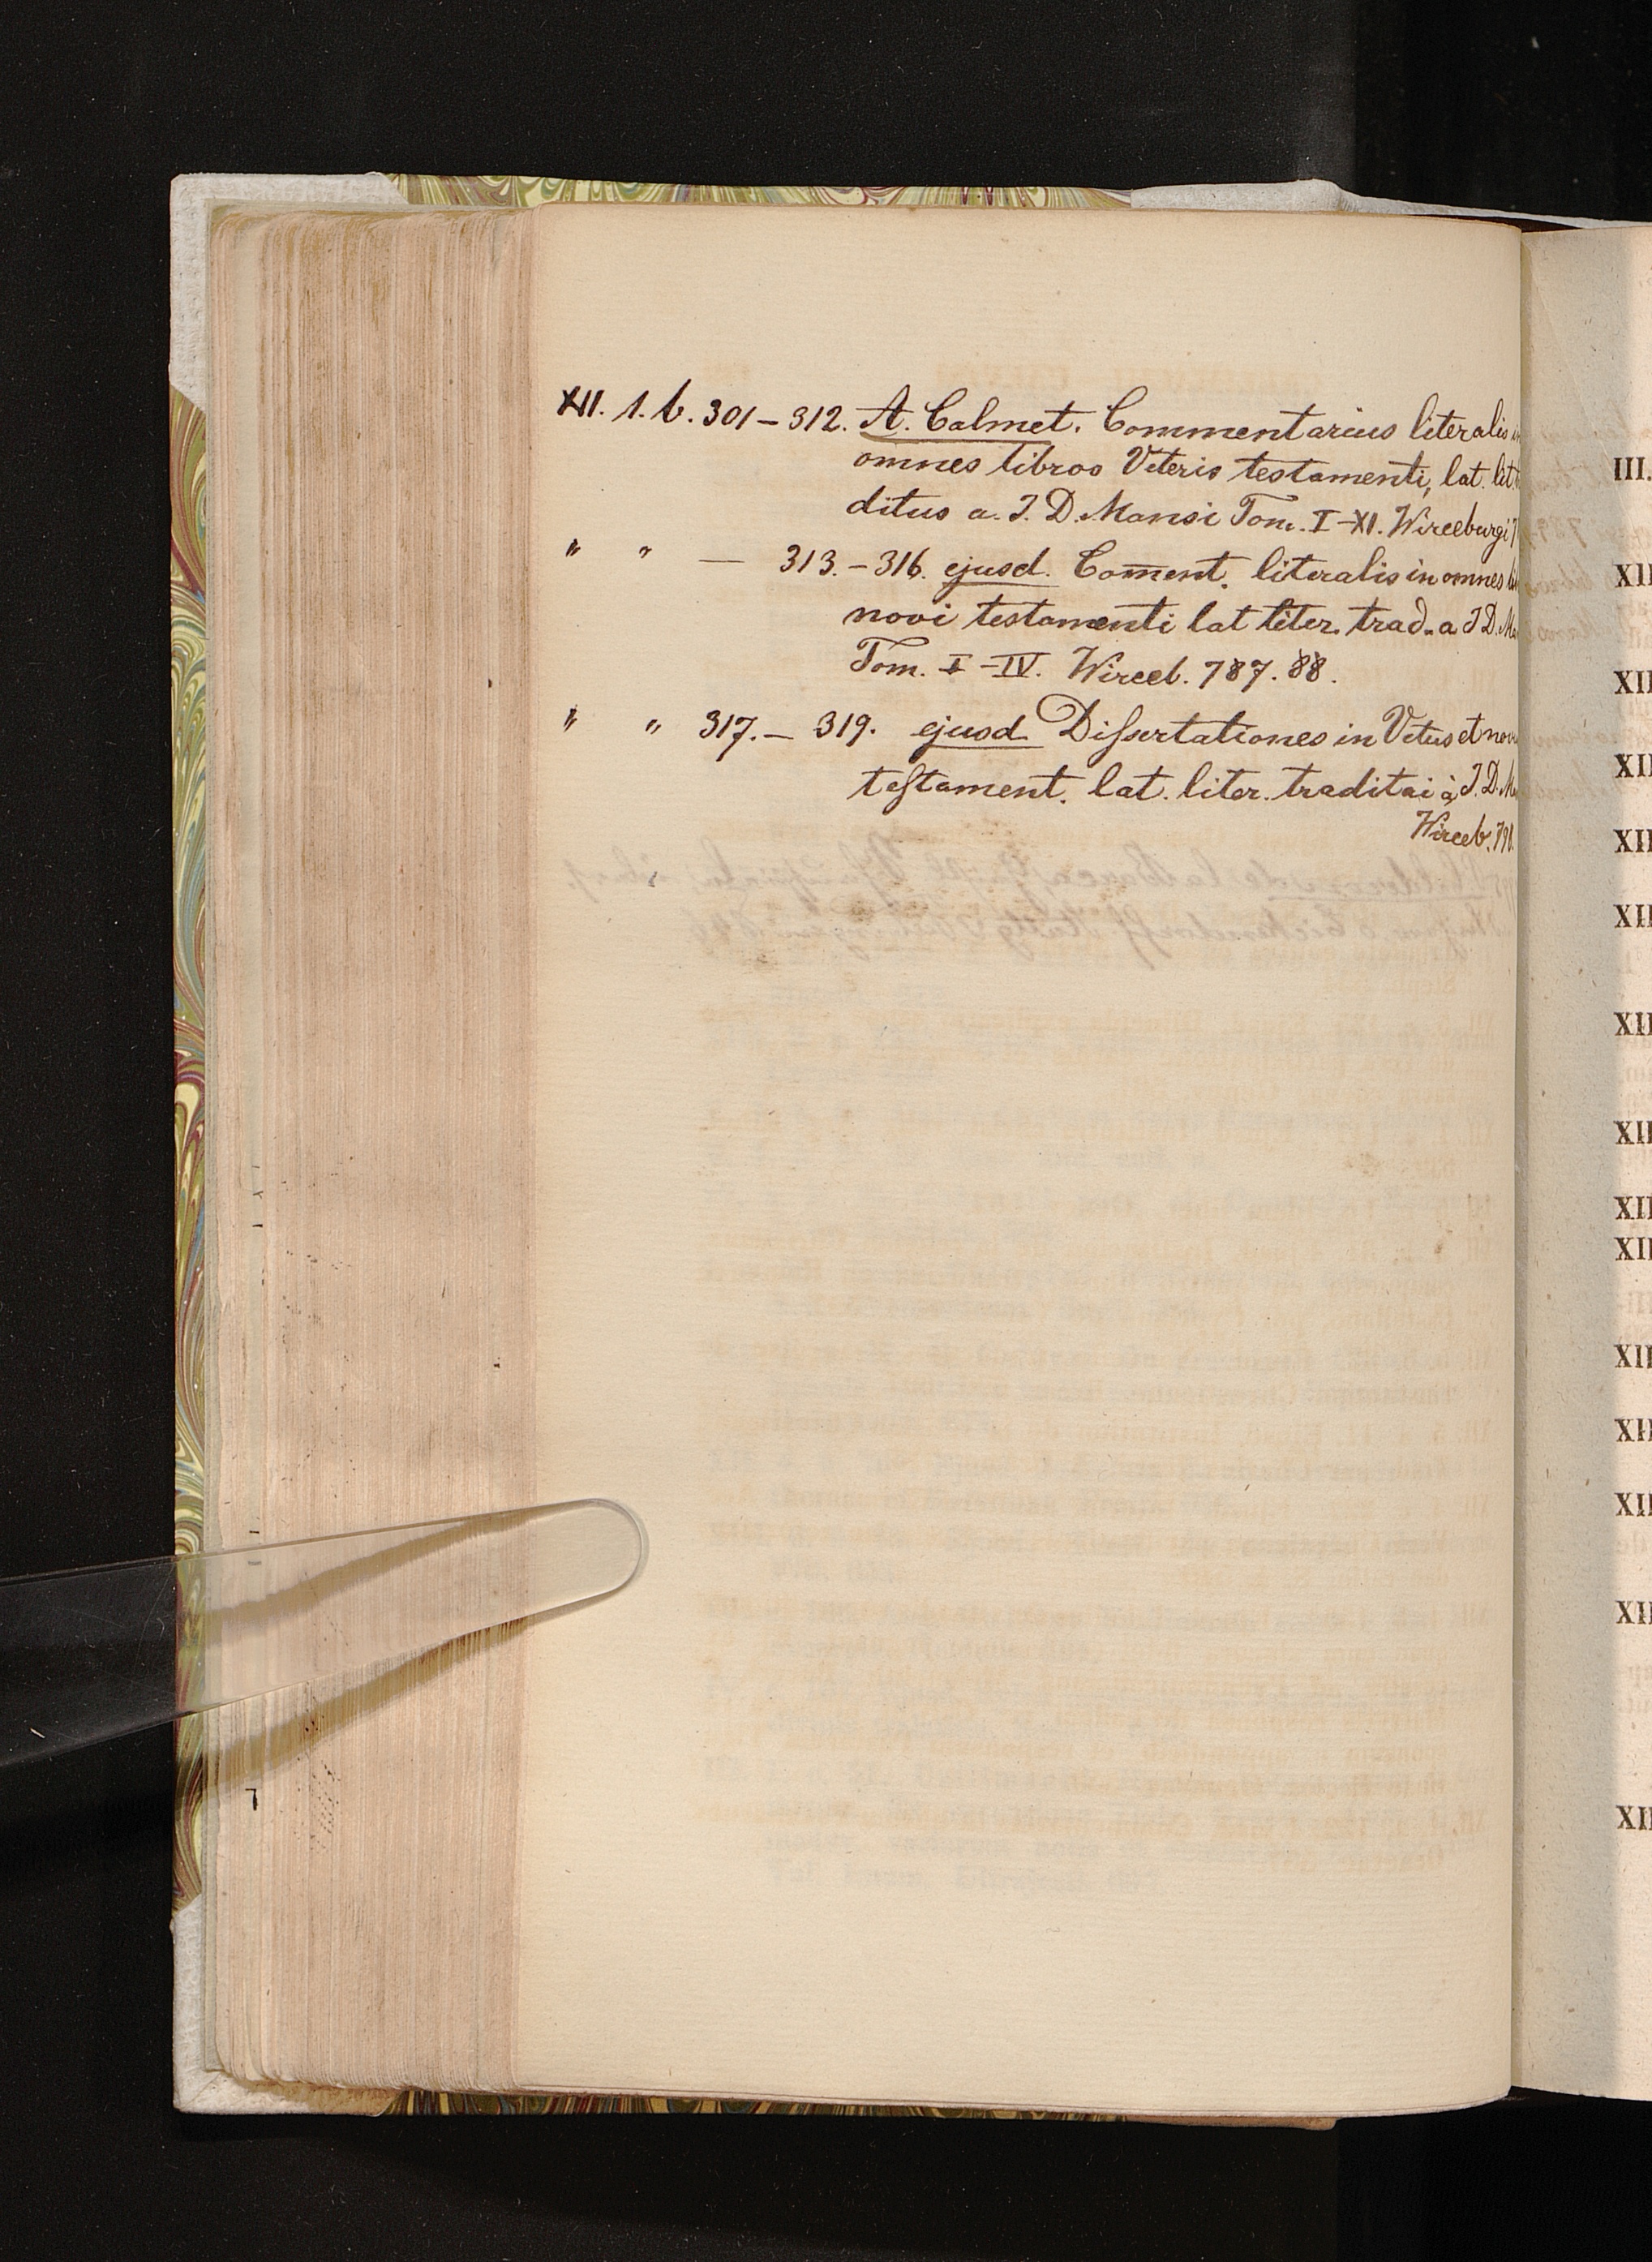 XII. 1. b. 301 – 312. A. Calmet. Commentarius literalis in
omnes libros Veteris testamenti, lat. lit
ditus a. J. D. Mansi Tom. I – XI. Wirceburgi
" " — 313. – 316. ejusd. Com̄ent. literalis in omnes
novi testamenti lat liter. trad. a J D. Ma
Tom. I – IV. Wirceb. 787. 88.
" " 317. – 319. ejusd Dissertationes in Vetus et nov
testament. lat. liter. traditai à J. D. M
Wirceb. 791.
III.
XII
XII
XII
XII
XII
XII
XII
XII
XII
XII
XII
XII
XII
XII